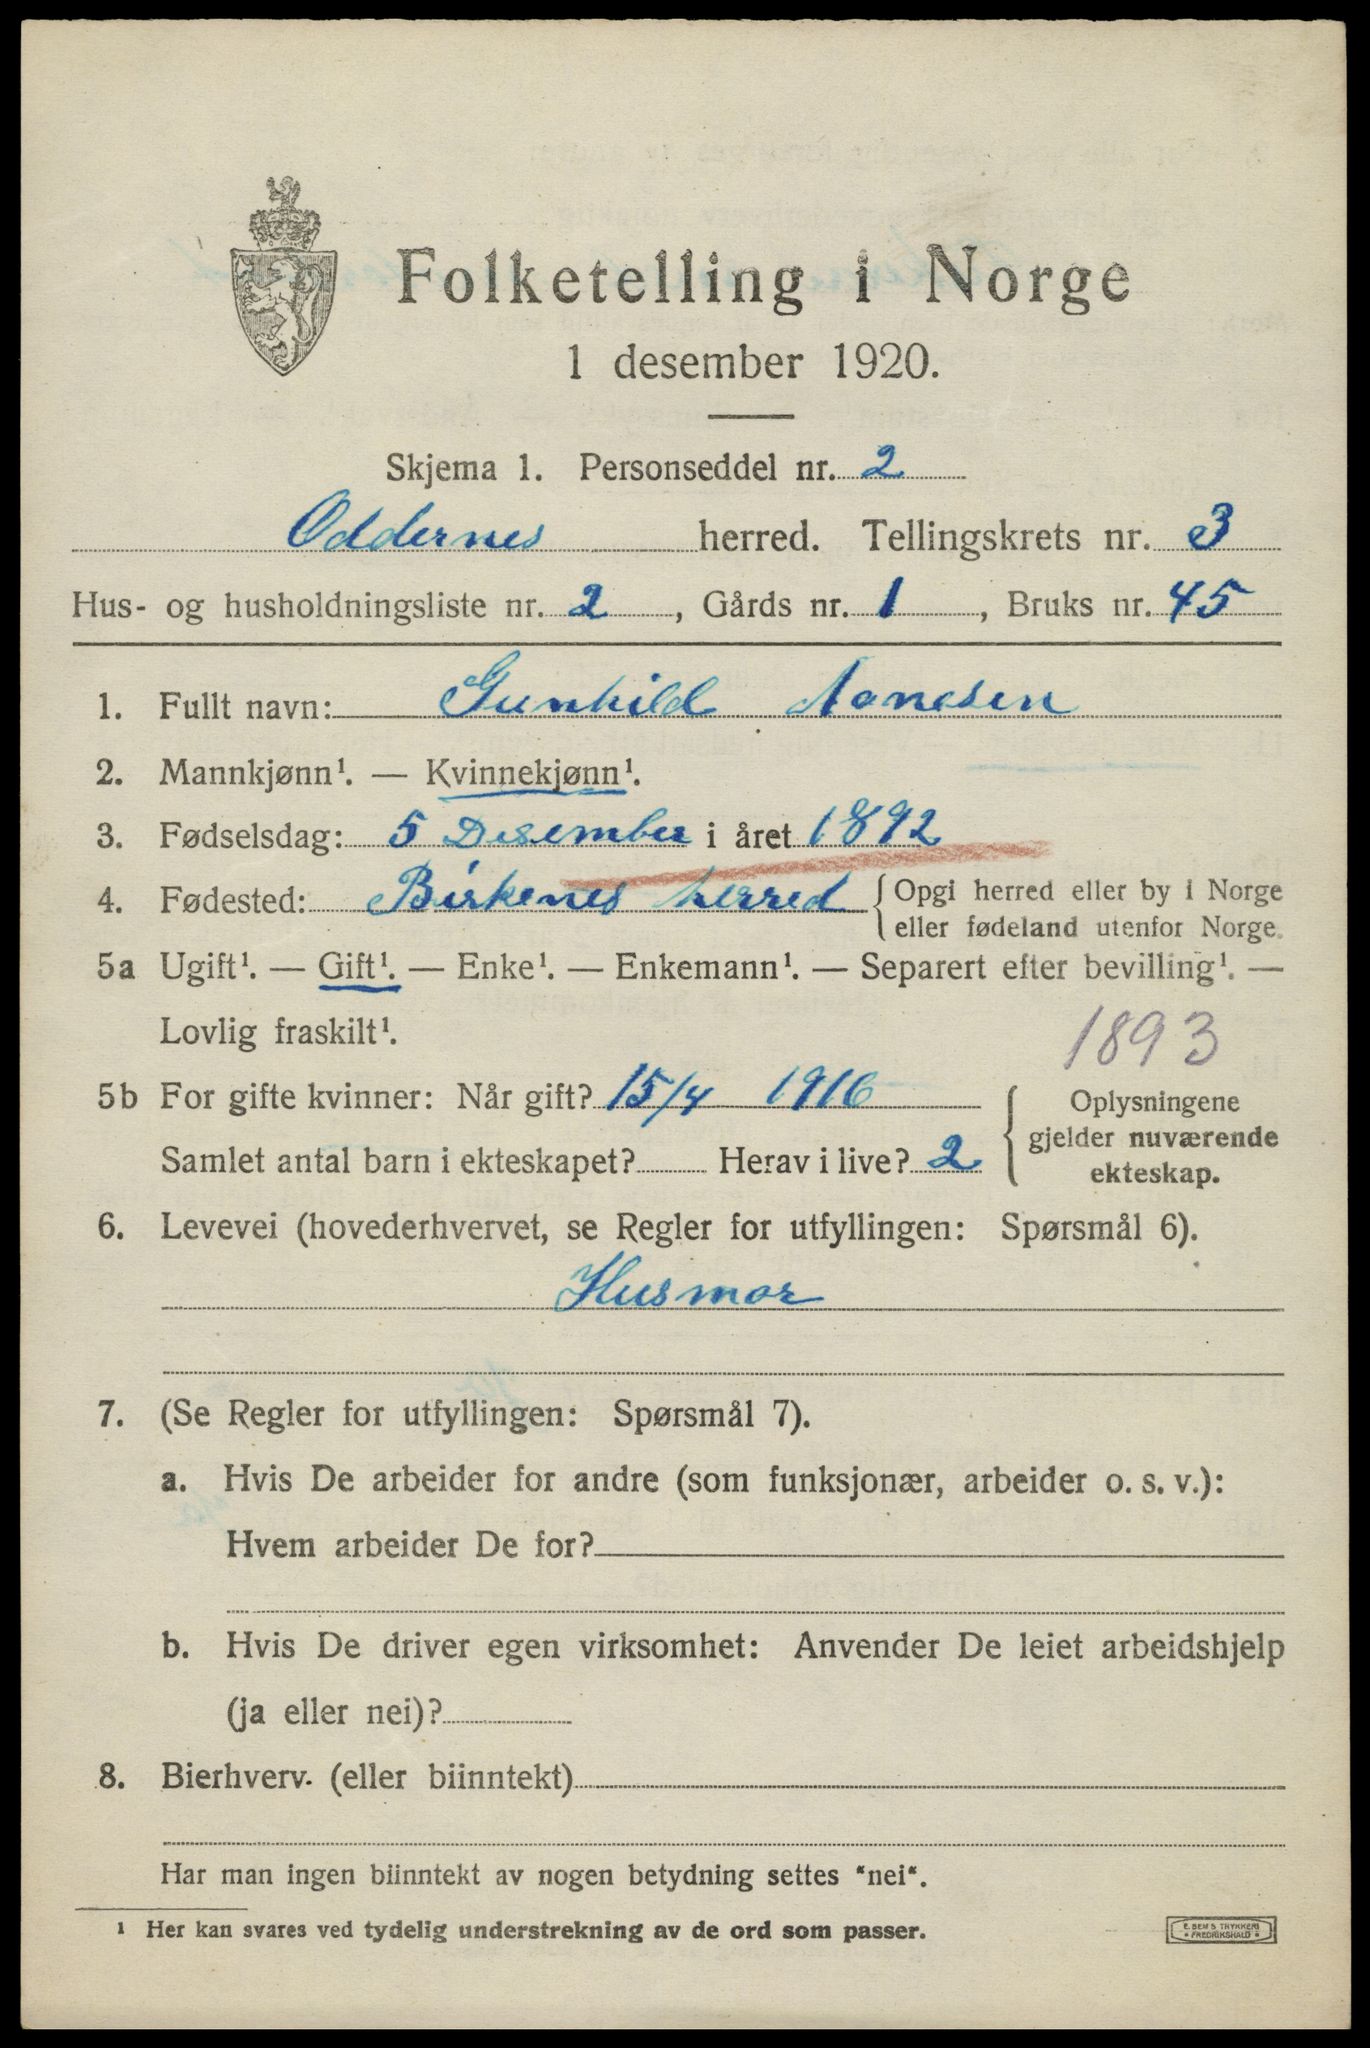 Folketelling i Norge
1 desember 1920.
Skjema 1. Personseddel nr. 2
Oddernes herred. Tellingskrets nr. 3
Hus- og husholdningsliste nr. 2, Gårds nr. 1, Bruks nr. 45
1. Fullt navn: Gunhild Aanesen
2. Mannkjønn¹. — Kvinnekjønn¹.
3. Fødselsdag: 5 Desember i året 1892
4. Fødested: Birkenes herred { Opgi herred eller by i Norge
eller fødeland utenfor Norge.
5a Ugift¹. — Gift¹. — Enke¹. — Enkemann¹. — Separert efter bevilling¹. —
Lovlig fraskilt¹.
1893
5b For gifte kvinner: Når gift? 15/4 1916
Samlet antal barn i ekteskapet? Herav i live? 2
Oplysningene
gjelder nuværende
ekteskap.
6. Levevei (hovederhvervet, se Regler for utfyllingen: Spørsmål 6).
Husmor
7. (Se Regler for utfyllingen: Spørsmål 7).
a. Hvis De arbeider for andre (som funksjonær, arbeider o. s. v.):
Hvem arbeider De for?
b. Hvis De driver egen virksomhet: Anvender De leiet arbeidshjelp
(ja eller nei)?
8. Bierhverv. (eller biinntekt)
Har man ingen biinntekt av nogen betydning settes "nei".
¹ Her kan svares ved tydelig understrekning av de ord som passer.
E. SEM'S TRYKKERI
FREDRIKSHALD